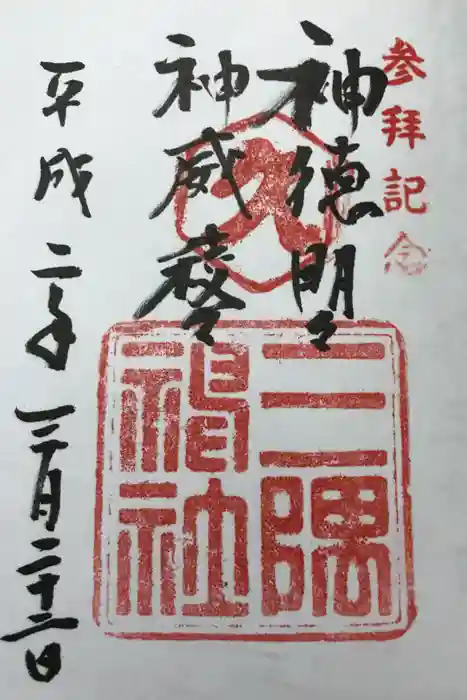 参拝記念
神徳明々
神威
平成二年三月二十三日
三隅神社